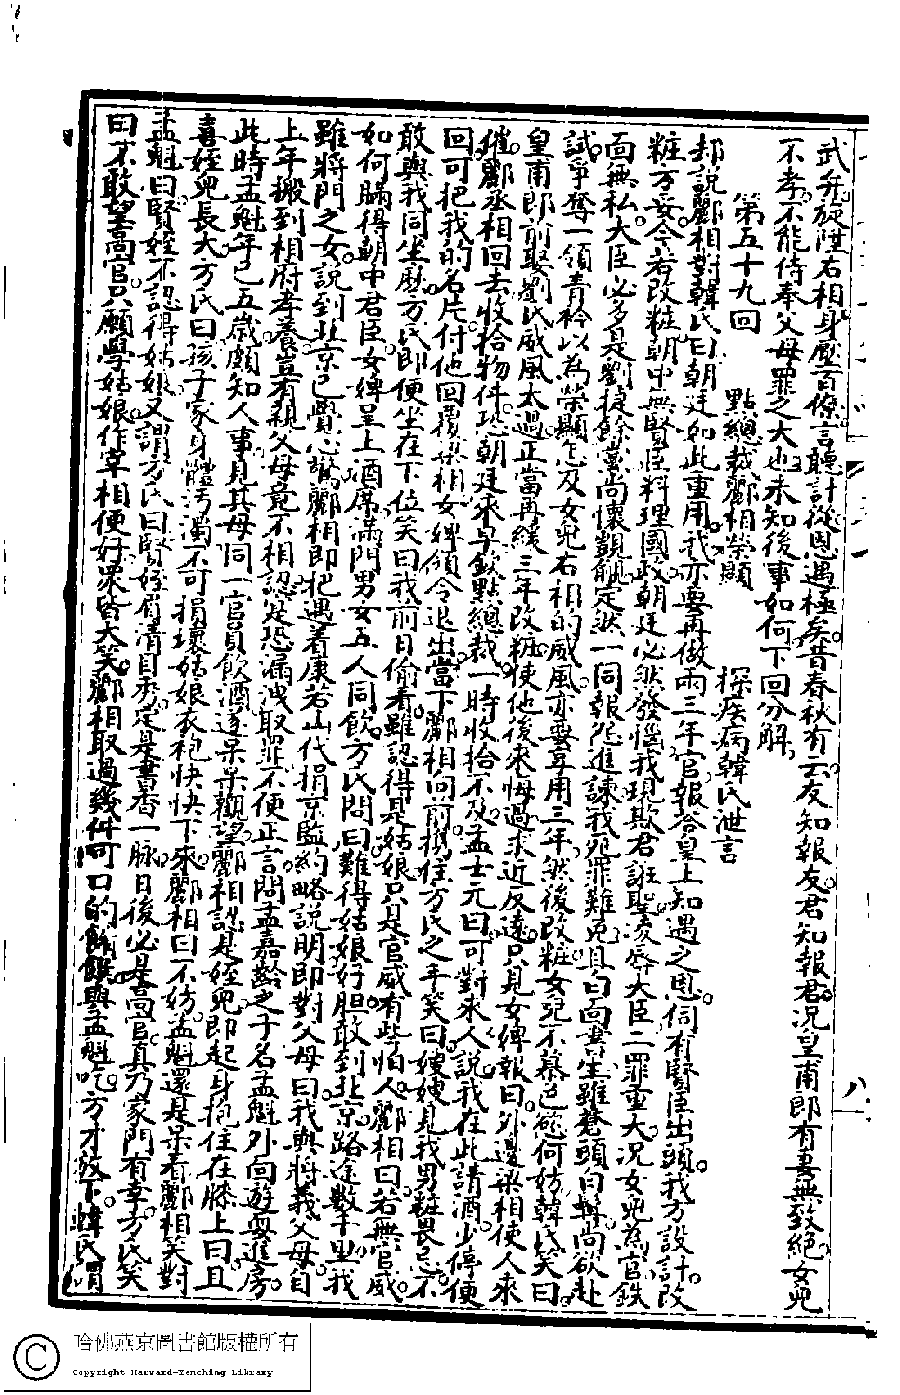 武弁旋陞右相身壓百僚言聽計從恩遇極矣昔春秋有云友知報友君知報君況皇甫郎有妻無致絕女兒
不孝不能侍奉父母罪之大也未知後事如何下回分解
第五十九回 點總裁酈相榮顯 探疾病韓氏泄言
却說酈相對韓氏曰朝廷如此重用我亦要再做兩三年官報答皇上知遇之恩伺有賢臣出頭我方設計改
粧方妥今若改粧朝中無賢臣料理國政朝廷必然發惱我現欺君誑聖凌辱大臣二罪重大況女兒為官鉄
面無私大臣必多是劉捷餘黨尚懷覬覦定然一同報怨進諫我死罪難免且白面書生雖蒼頭白髮尚欲赴
試爭奪一領青衿以為榮顯怎及女兒右相的威風亦要享用三年然後改粧女兒不慕色慾何妨韓氏笑曰
皇甫郎前娶劉氏威風太過正當再緩三年改粧使他後來悔過求近反遠只見女婢報曰外邊梁相使人來
催酈丞相回去收拾物件恐朝廷來早欽點總裁一時收拾不及孟士元曰可對來人說我在此請酒少停便
回可把我的名片付他回覆梁相女婢領令退出當下酈相向前携住方氏之手笑曰嫂嫂見我男粧畏忌不
敢與我同坐麽方氏即便坐在下位笑曰我前日偷看雖認得是姑娘只是官威有些怕人酈相曰若無官威
如何瞞得朝中君臣女婢呈上酒席滿門男女五人同飲方氏問曰難得姑娘好胆敢到北京路途數千里我
雖將門之女說到北京已覺心驚酈相即把遇着康若山代捐京監約略說明即對父母曰我與將義父母自
上年搬到相府孝養豈有親父母竟不相認是恐漏洩取罪不便正言問孟嘉齡之子名孟魁外向遊耍進房
此時孟魁年已五歲頗知人事見其母同一官員飲酒遂呆呆觀望酈相認是姪兒即起身抱住在膝上曰且
喜姪兒長大方氏曰孩子家身體汚濁不可損壞姑娘衣袍快快下來酈相曰不妨孟魁還是呆看酈相笑對
孟魁曰賢姪不認得姑娘又謂方氏曰賢姪眉清目秀定是書香一脉日後必是高官真乃家門有幸方氏笑
曰不敢望高官只願學姑娘作草相便好眾皆大笑酈相取過幾件可口的餚饌與孟魁吃方才放下韓氏謂
哈佛燕京圖書館版權所有
Copyright Harvard-Yenching Library